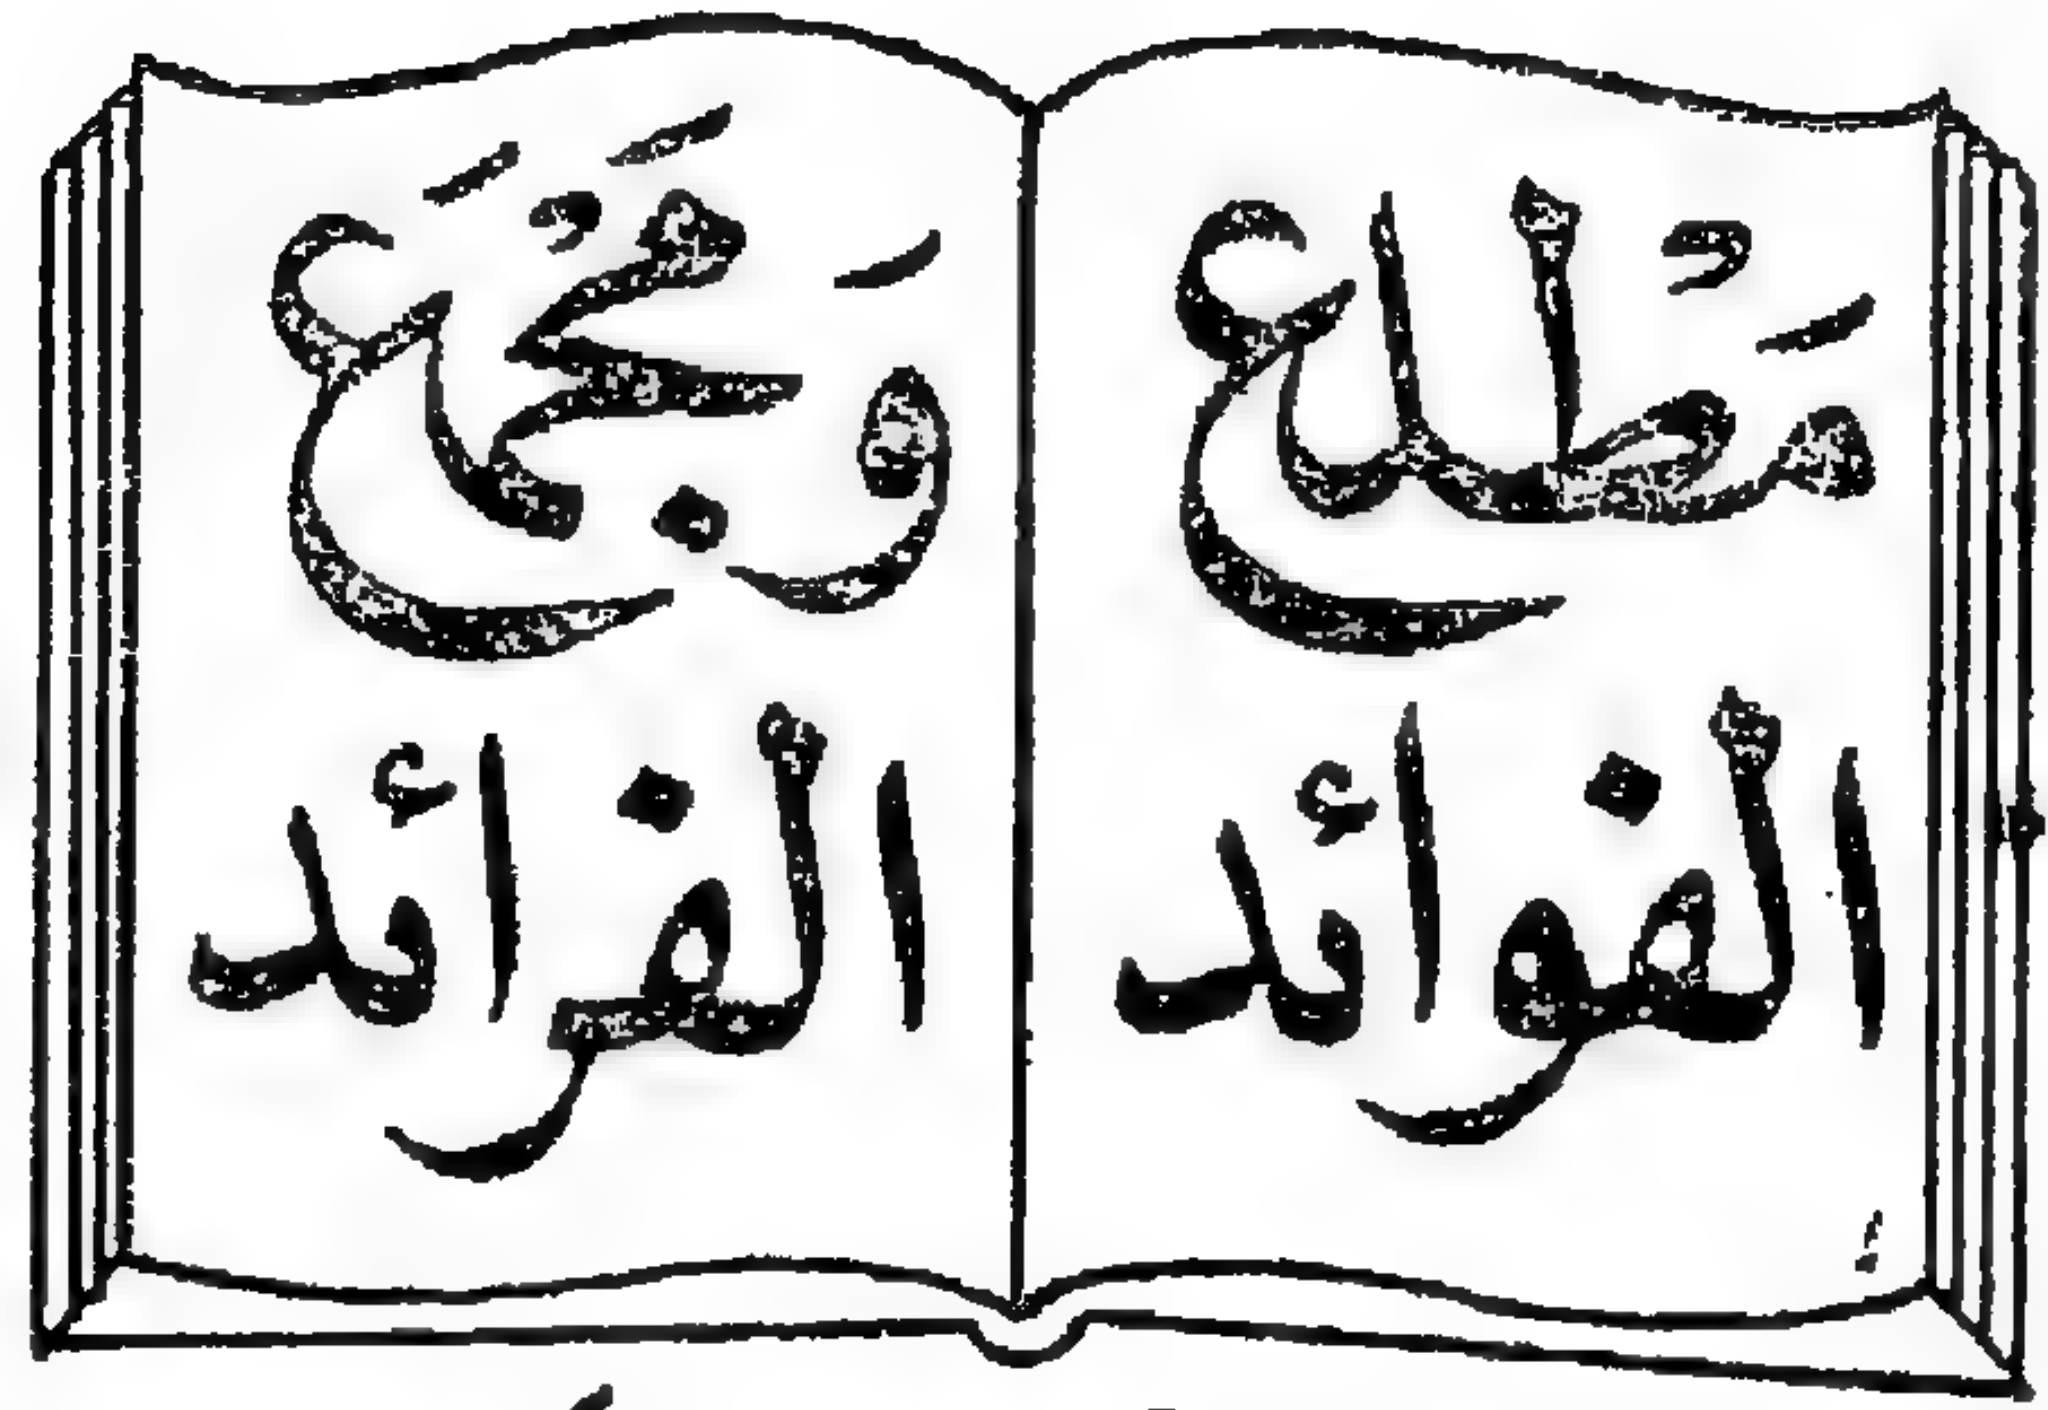 مَطْلع
الفوائد
وَمَجْمَع
الفرائد